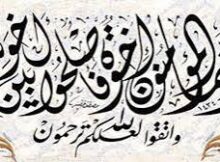 المؤمنون إخوة فأصلحوا بين أخو
واتقوا الله لعلكم ترحمون